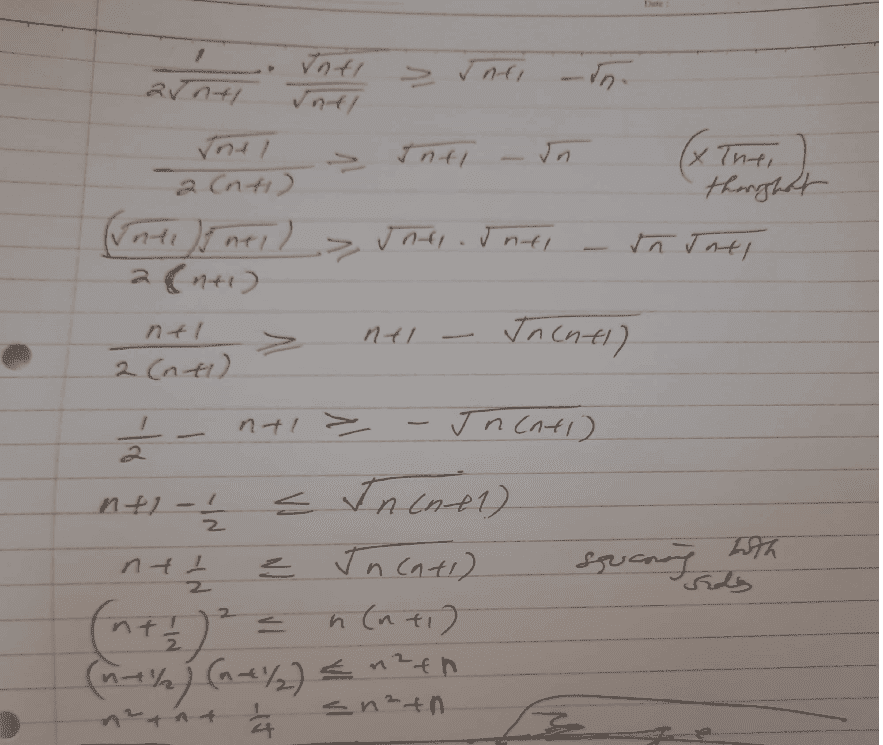 Date
1/(2√n+1) · √n+1/√n+1 ≥ √n+1 - √n.
√n+1/2(n+1) ≥ √n+1 - √n (× √n+1) throughout
(√n+1)(√n+1)/2(n+1) ≥ √n+1 . √n+1 - √n √n+1
n+1/2(n+1) ≥ n+1 - √n(n+1)
1/2 - n+1 ≥ - √n(n+1)
n+1 - 1/2 ≤ √n(n+1)
n + 1/2 ≤ √n(n+1) squaring both sides
(n + 1/2)² ≤ n(n+1)
(n+1/2)(n+1/2) ≤ n²+n
n² + n + 1/4 ≤ n²+n